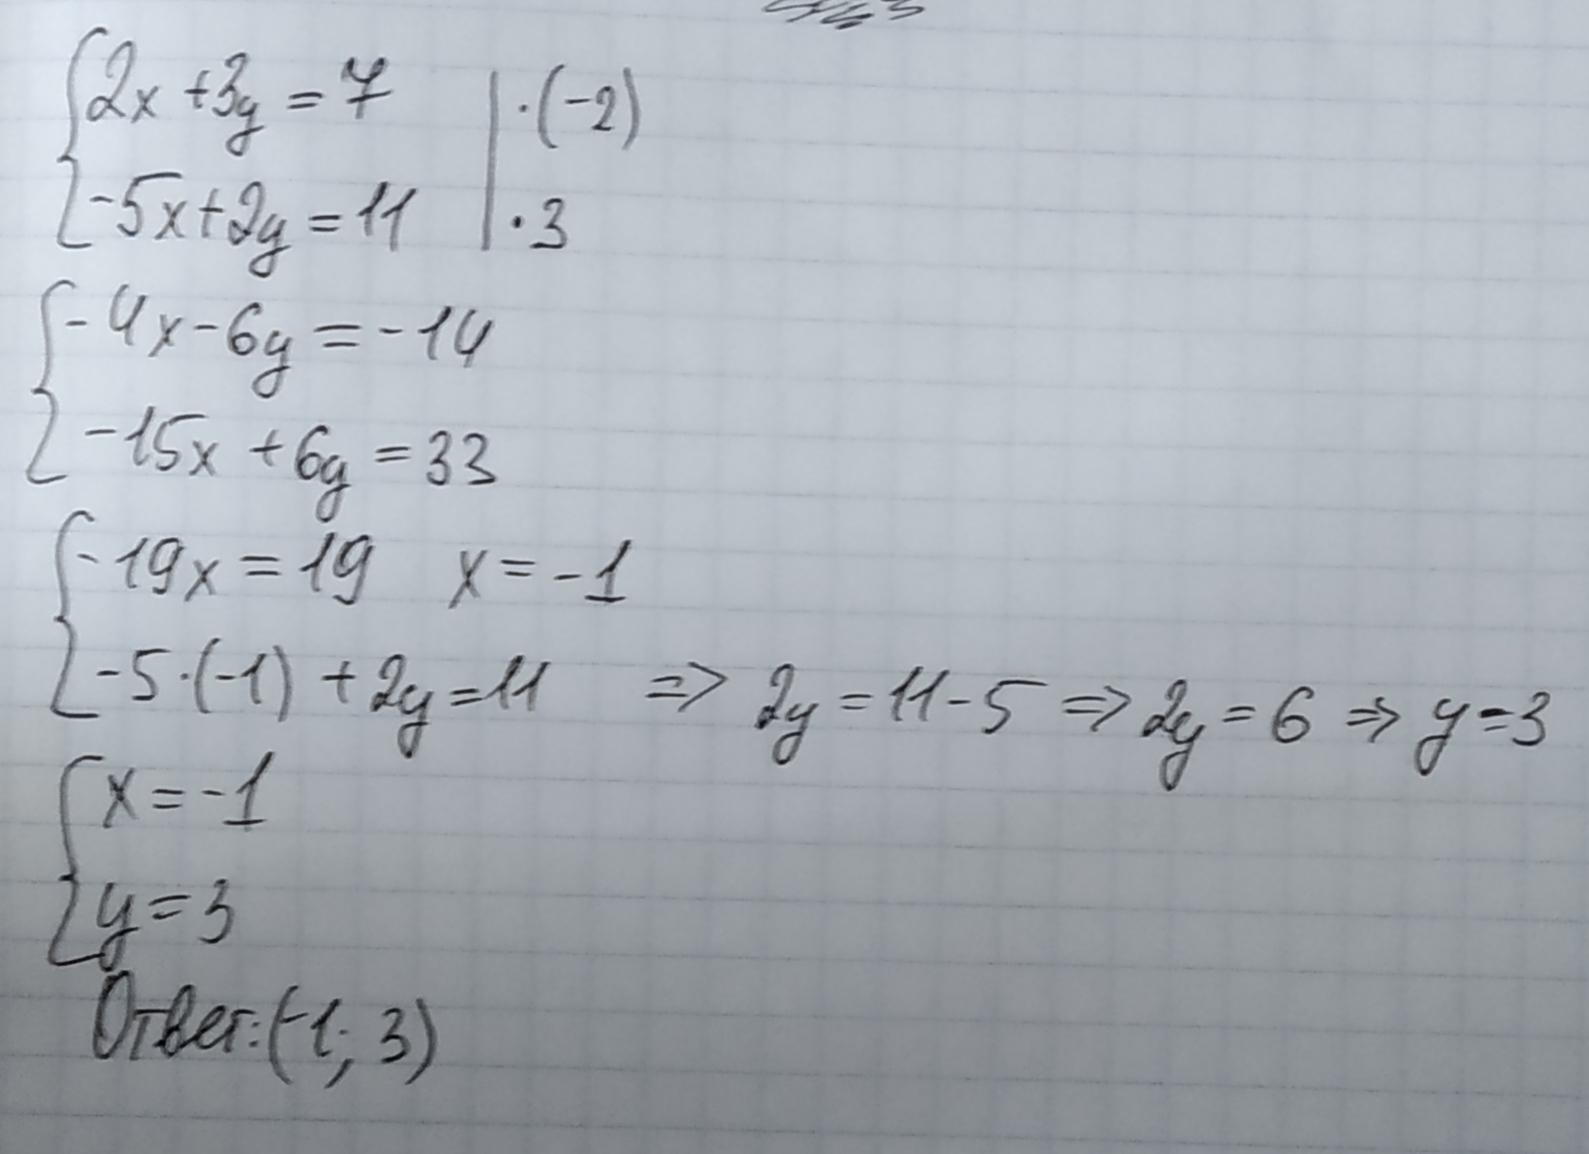 {2x + 3y = 7 | · (-2)
{-5x + 2y = 11 | · 3
{-4x - 6y = -14
{-15x + 6y = 33
{-19x = 19 x = -1
{-5 · (-1) + 2y = 11 => 2y = 11 - 5 => 2y = 6 => y = 3
{x = -1
{y = 3
Ответ: (-1; 3)